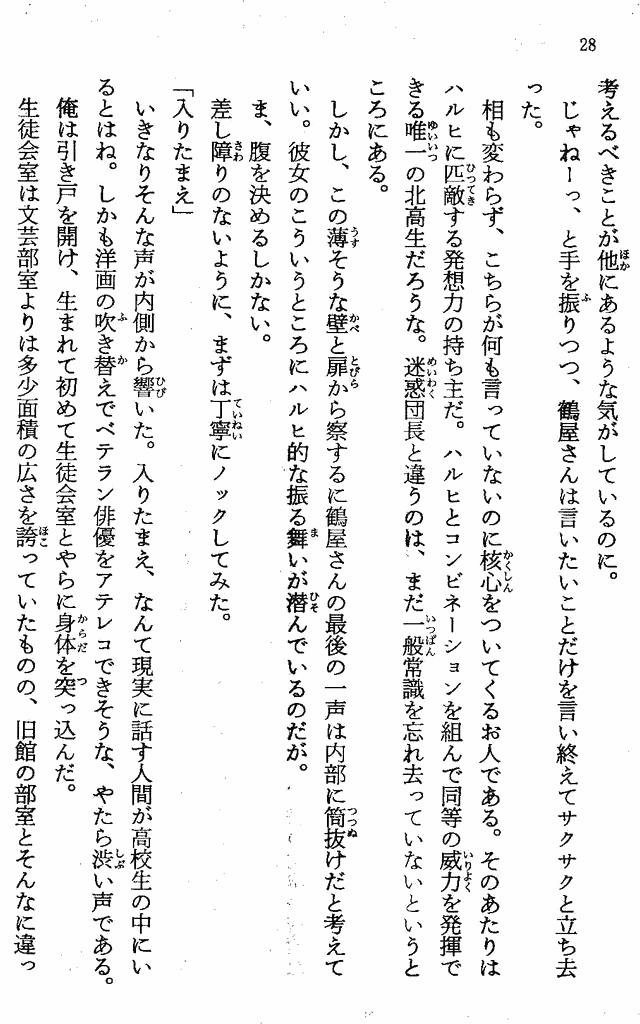 28
考えるべきことが他にあるような気がしているのに。
じゃねーっ、と手を振りつつ、鶴屋さんは言いたいことだけを言い終えてサクサクと立ち去
った。
相も変わらず、こちらが何も言っていないのに核心をついてくるお人である。そのあたりは
ハルヒに匹敵する発想力の持ち主だ。ハルヒとコンビネーションを組んで同等の威力を発揮で
きる唯一の北高生だろうな。迷惑団長と違うのは、まだ一般常識を忘れ去っていないというと
ころにある。
しかし、この薄そうな壁と扉から察するに鶴屋さんの最後の一声は内部に筒抜けだと考えて
いい。彼女のこういうところにハルヒ的な振る舞いが潜んでいるのだが。
ま、腹を決めるしかない。
差し障りのないように、まずは丁寧にノックしてみた。
「入りたまえ」
いきなりそんな声が内側から響いた。入りたまえ、なんて現実に話す人間が高校生の中にい
るとはね。しかも洋画の吹き替えでベテラン俳優をアテレコできそうな、やたら渋い声である。
俺は引き戸を開け、生まれて初めて生徒会室とやらに身体を突っ込んだ。
生徒会室は文芸部室よりは多少面積の広さを誇っていたものの、旧館の部室とそんなに違っ